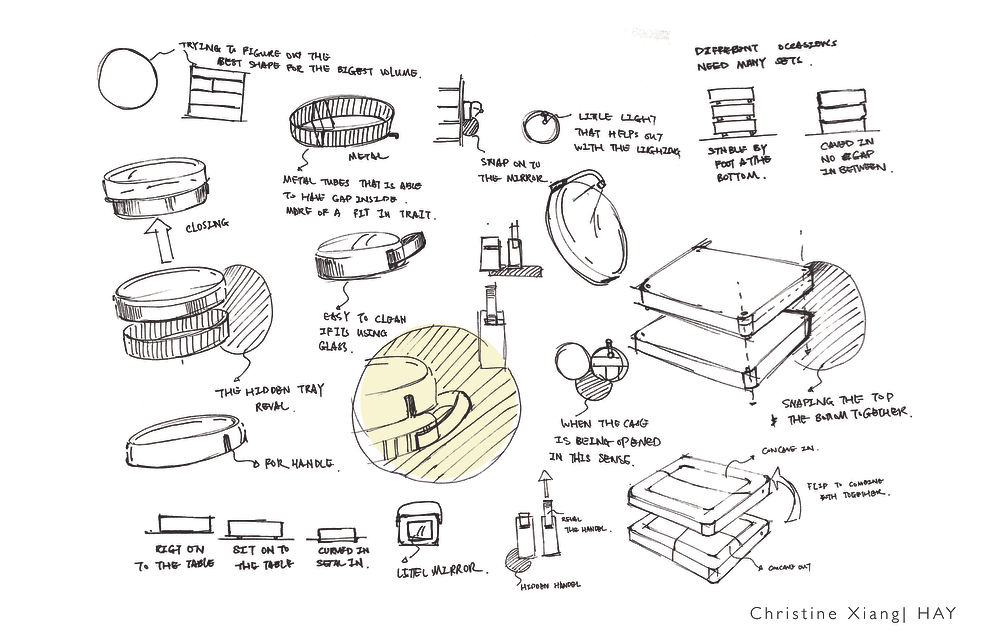 TRYING TO FIGURE OUT THE
BEST SHAPE FOR THE BIGEST VOLUME.
DIFFERENT OCCASIONS
NEED MANY SETS.
METAL
LITTLE LIGHT
THAT HELPS OUT
WITH THE LIGHING
SNAP ON TO
THE MIRROR.
STABLE BY
FOOT AT THE
BOTTOM.
CAVED IN
NO GAP
IN BETWEEN.
METAL TUBES THAT IS ABLE
TO HAVE GAP INSIDE.
MORE OF A FIT IN TRAIT.
CLOSING
EASY TO CLEAN
IF ITS USING
GLASS.
THE HIDDEN TRAY
REVAL.
SNAPING THE TOP
& THE BOTTOM TOGETHER.
WHEN THE CASE
IS BEING OPENED
IN THIS SENSE.
FOR HANDLE.
CONCAVE IN.
FLIP TO COMBINE
BOTH TOGETHER.
REVAL
THE HANDEL
RIGT ON
TO THE TABLE
SIT ON TO
THE TABLE
CURVED IN
SEAL IN.
LITEL MIRROR.
HIDDEN HANDEL
CONCAVE OUT
Christine Xiang| HAY